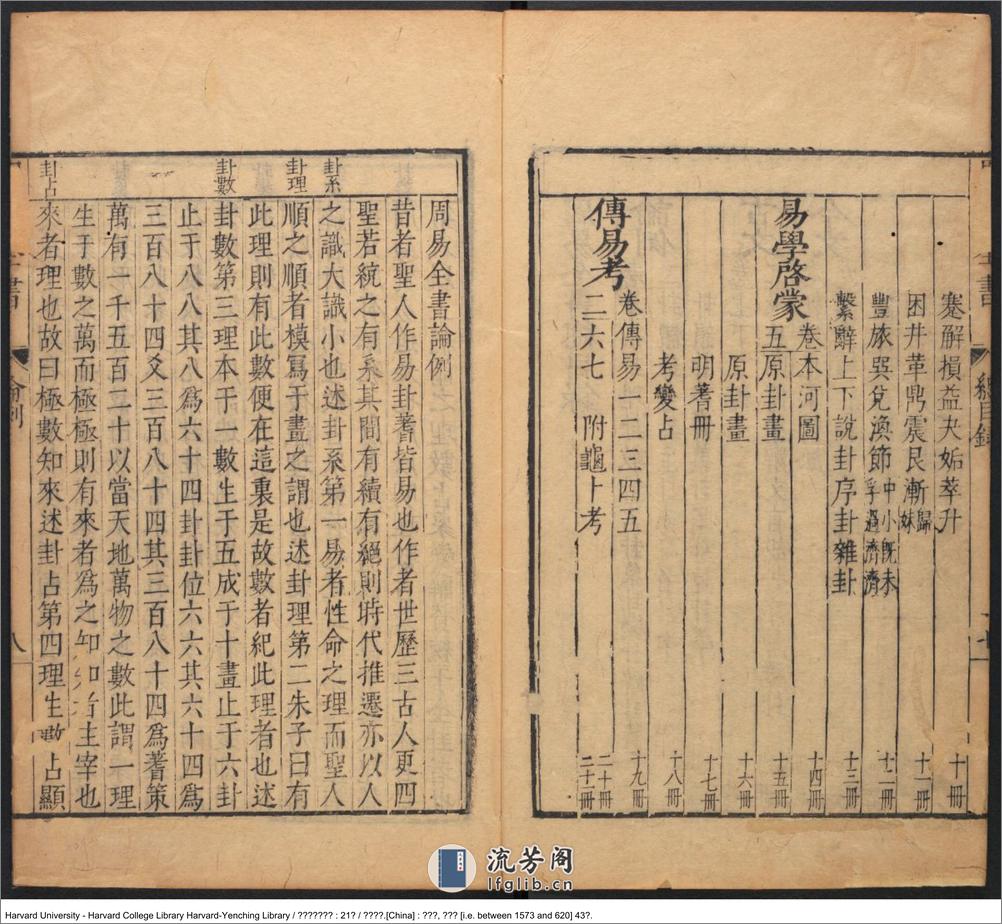 全書
總目錄
蹇解損益夬姤萃升 十冊
困井革鼎震艮漸歸妹 十一冊
豐旅巽兌渙節中孚小過既濟未濟 十二冊
繫辭上下說卦序卦雜卦 十三冊
易學啓蒙五卷本河圖 十四冊
原卦畫 十五冊
原卦畫 十六冊
明蓍册 十七冊
考變占 十八冊
傳易考二卷傳易一二三四五 十九冊
六七 二十冊
附龜卜考 二十一冊
周易全書論例
昔者聖人作易卦蓍皆易也作者世歷三古人更四
聖若統之有系其間有續有絕則時代推遷亦以人
卦系
之識大識小也述卦系第一易者性命之理而聖人
卦理
順之順者模寫于畫之謂也述卦理第二朱子曰有
此理則有此數便在這裏是故數者紀此理者也述
卦數
卦數第三理本于一數生于五成于十畫止于六卦
止于八八其八爲六十四卦卦位六六其六十四爲
三百八十四爻三百八十四其三百八十四爲蓍策
萬有一千五百二十以當天地萬物之數此謂一理
生于數之萬而極極則有來者爲之知知者主宰也
卦占
來者理也故曰極數知來述卦占第四理生數占顯
書
論例
八
流芳阁
lfglib.cn
Harvard University - Harvard College Library Harvard-Yenching Library / ??????? : 21? / ????.[China] : ???, ??? [i.e. between 1573 and 620] 43?.